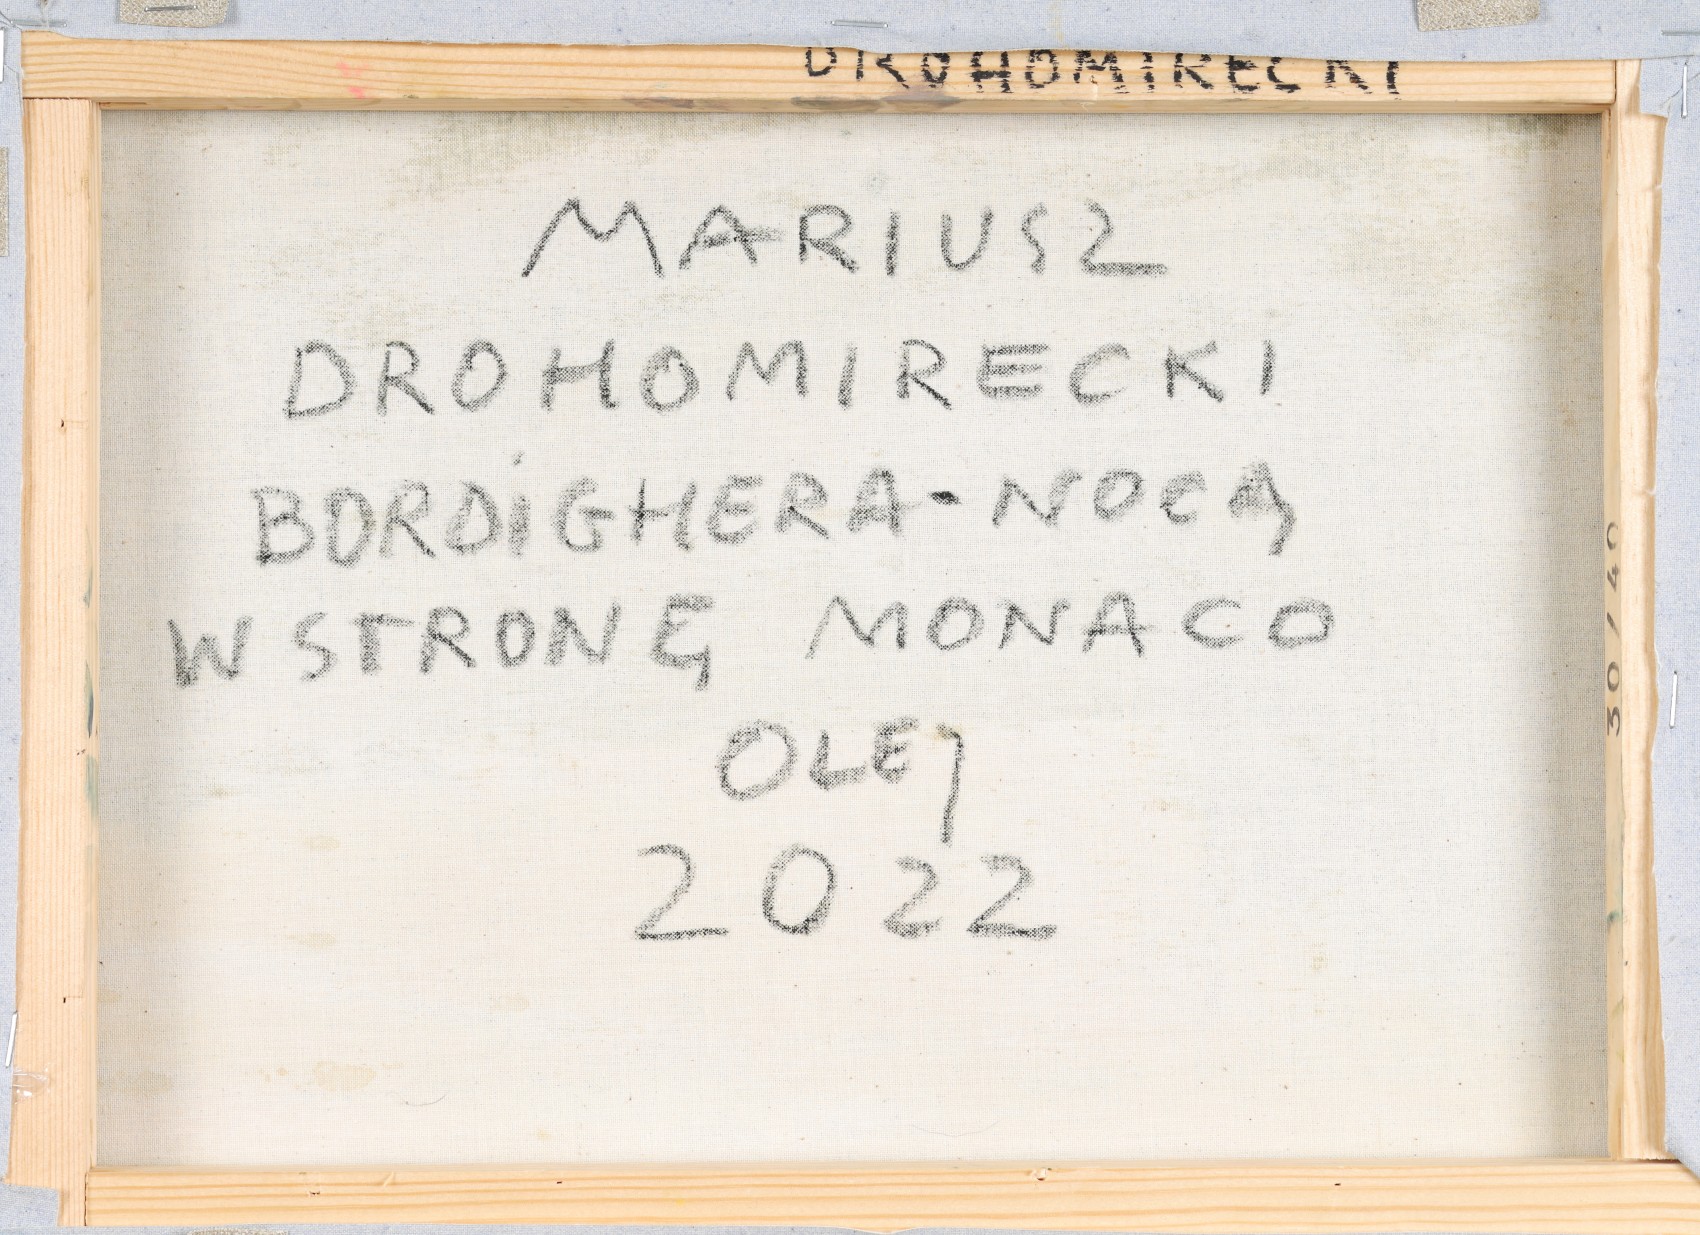 DROHOMIRECKI
MARIUSZ
DROHOMIRECKI
BORDIGHERA-NOCĄ
W STRONĘ MONACO
OLEJ
2022
30/40